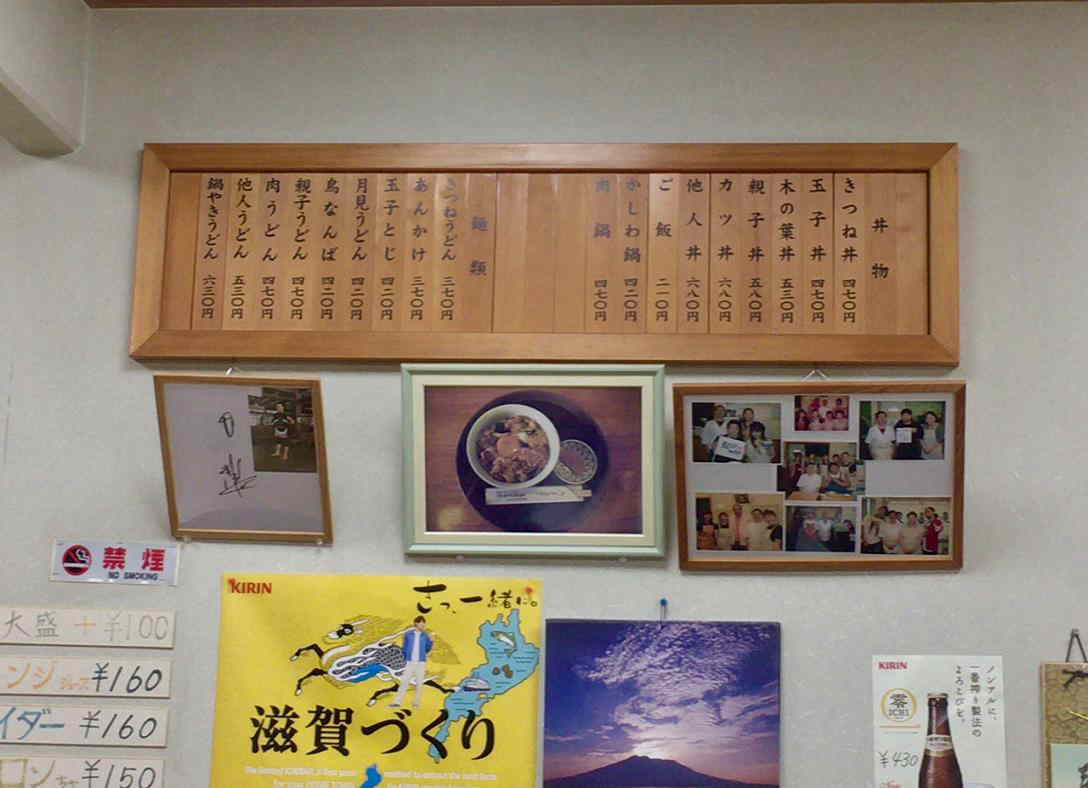 丼物
きつね丼 四七〇円
玉子丼 四七〇円
木の葉丼 五三〇円
親子丼 五八〇円
カツ丼 六八〇円
他人丼 六八〇円
ご飯 二一〇円
かしわ鍋 四二〇円
肉鍋 四七〇円
麺類
きつねうどん 三七〇円
あんかけ 三七〇円
玉子とじ 四二〇円
月見うどん 四二〇円
鳥なんば 四二〇円
親子うどん 四七〇円
肉うどん 四七〇円
他人うどん 五三〇円
鍋やきうどん 六三〇円
禁煙
NO SMOKING
大盛 + ¥100
ンジジュース ¥160
イダー ¥160
¥150
KIRIN
きっと、一緒に。
滋賀づくり
KIRIN
ノンアルに、
一番搾り製法の
よろこびを。
零
ICHI
¥430